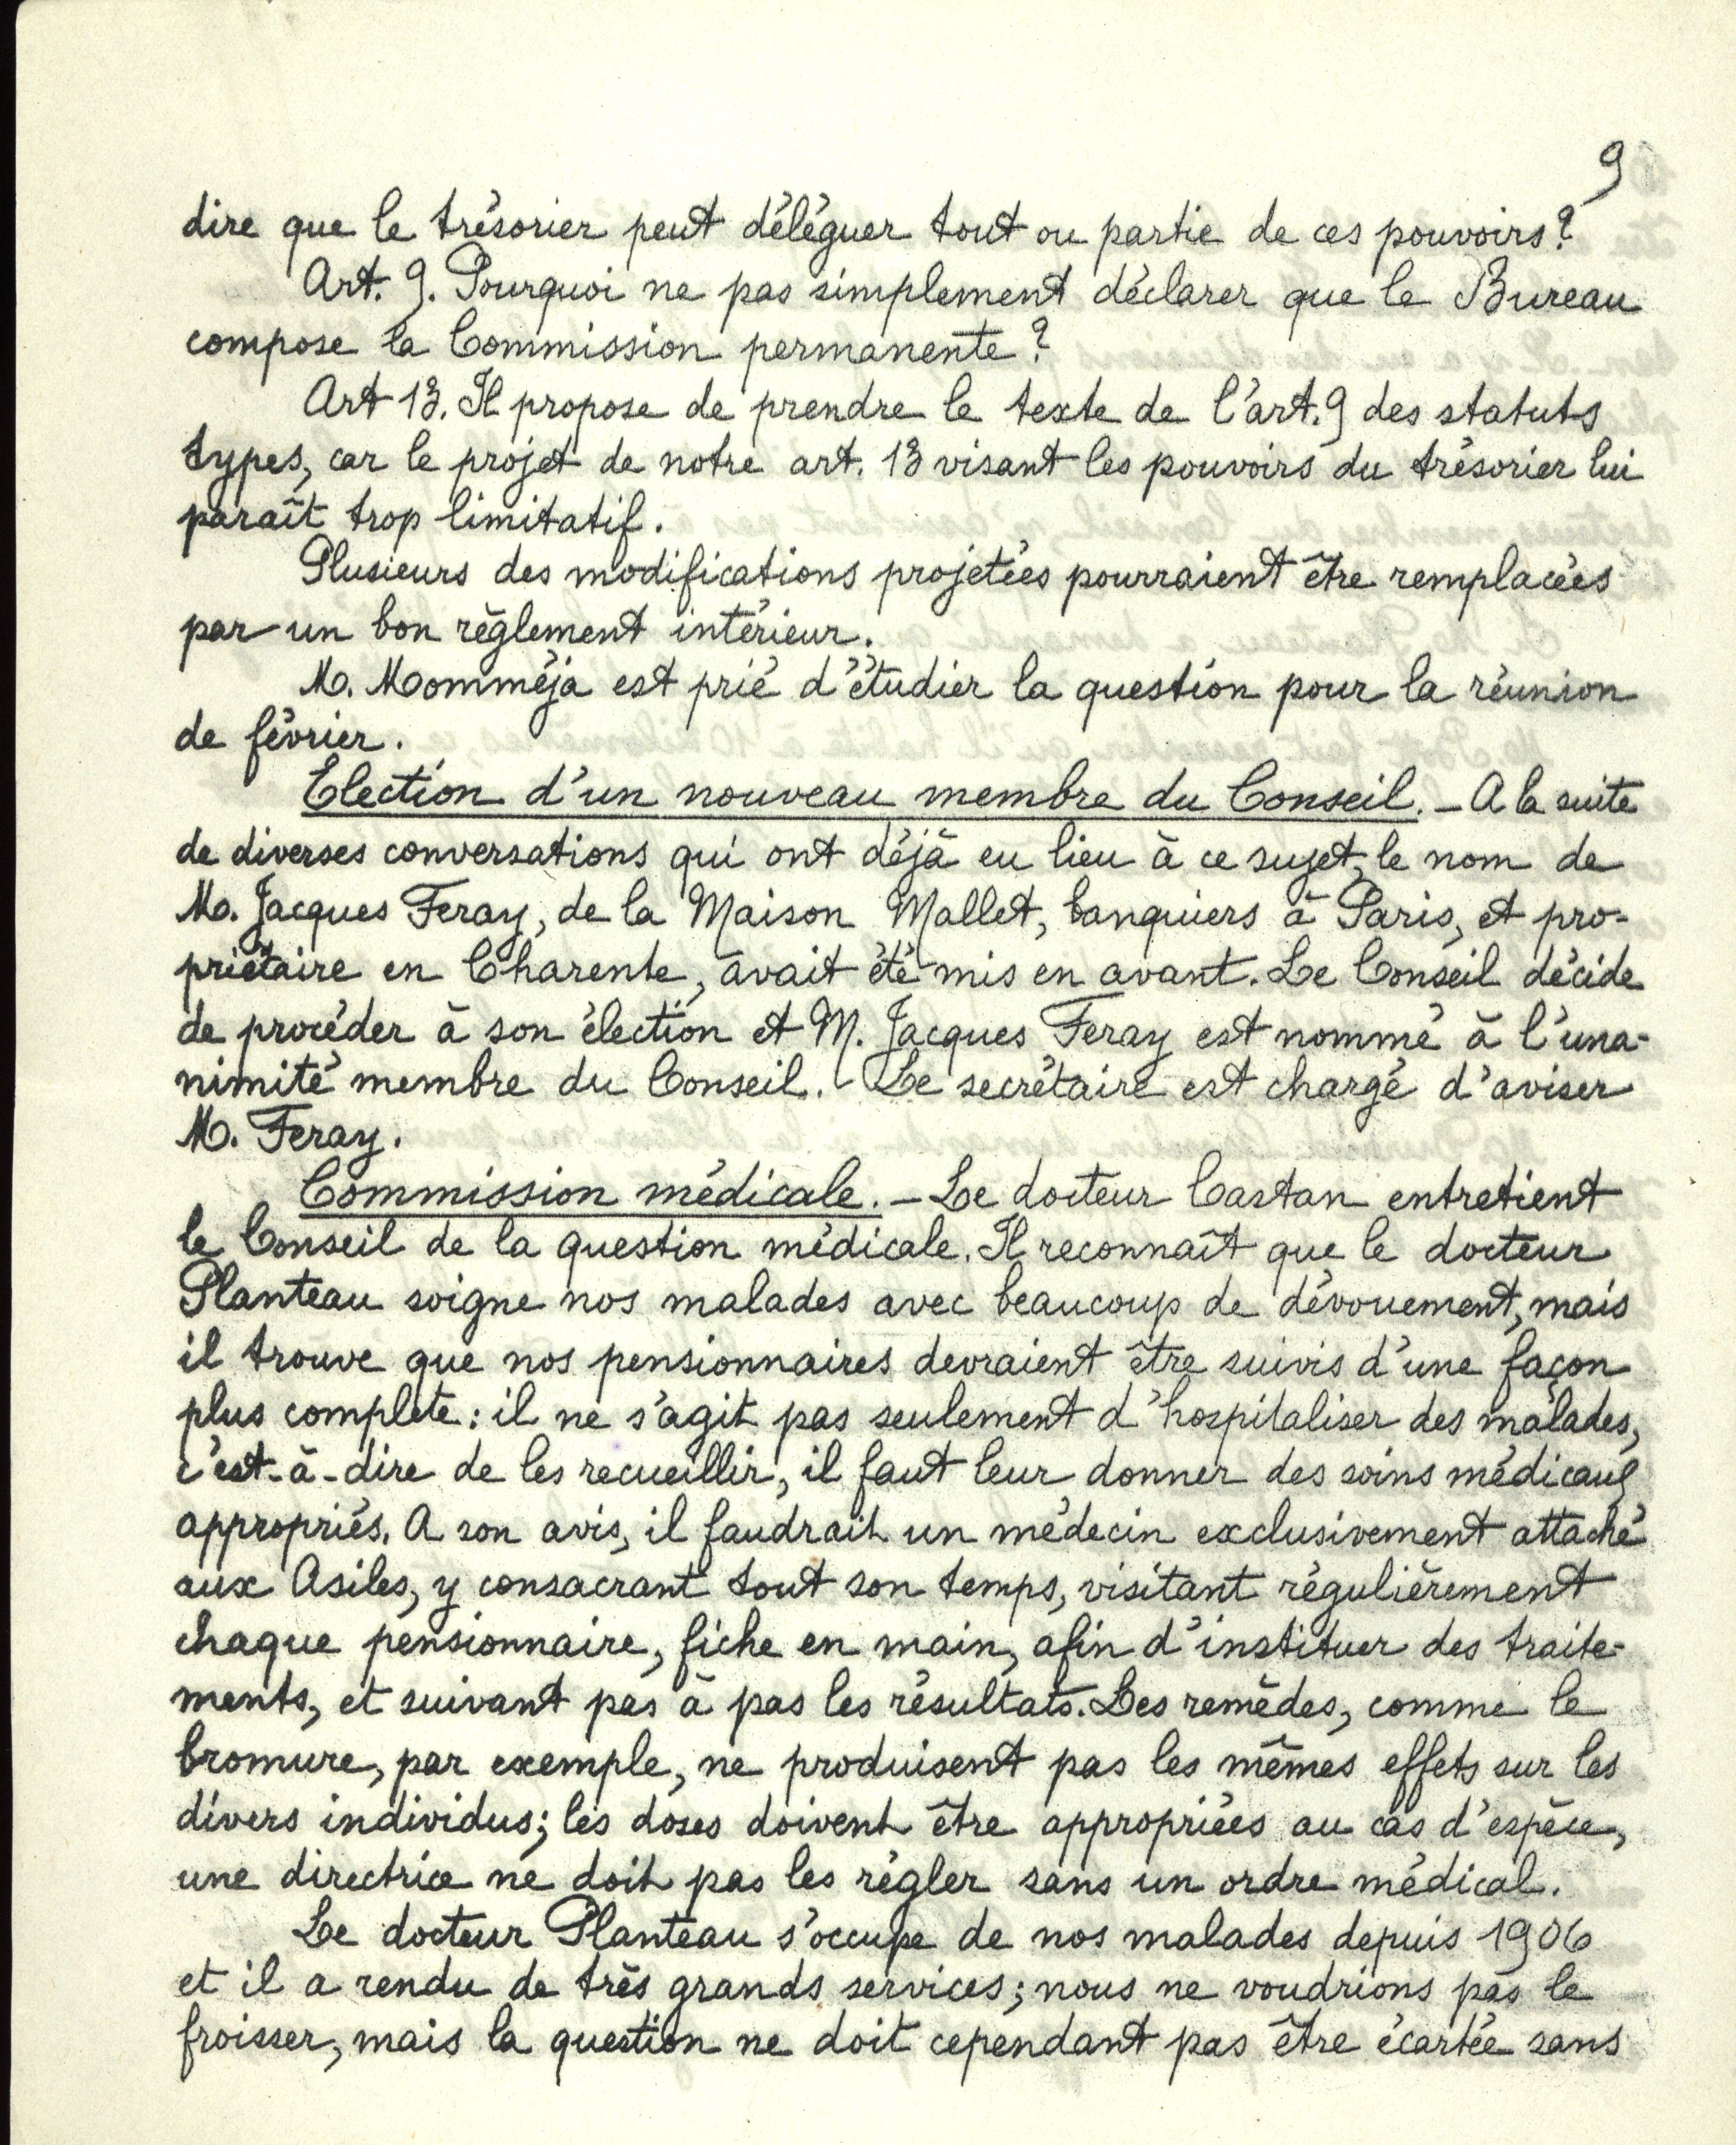 9
dire que le trésorier peut déléguer tout ou partie de ces pouvoirs?
Art. 9. Pourquoi ne pas simplement déclarer que le Bureau
compose la Commission permanente?
Art 13. Il propose de prendre le texte de l'art. 9 des statuts
types, car le projet de notre art. 13 visant les pouvoirs du trésorier lui
paraît trop limitatif.
Plusieurs des modifications projetées pourraient être remplacées
par un bon règlement intérieur.
M. Momméja est prié d'étudier la question pour la réunion
de février.
Election d'un nouveau membre du Conseil. - A la suite
de diverses conversations qui ont déjà eu lieu à ce sujet, le nom de
M. Jacques Feray, de la Maison Mallet, banquiers à Paris, et pro-
priétaire en Charente, avait été mis en avant. Le Conseil décide
de procéder à son élection et M. Jacques Feray est nommé à l'una-
nimité membre du Conseil. Le secrétaire est chargé d'aviser
M. Feray.
Commission médicale. - Le docteur Castan entretient
le Conseil de la question médicale. Il reconnaît que le docteur
Planteau soigne nos malades avec beaucoup de dévouement, mais
il trouve que nos pensionnaires devraient être suivis d'une façon
plus complète : il ne s'agit pas seulement d'hospitaliser des malades,
c'est-à-dire de les recueillir, il faut leur donner des soins médicaux
appropriés. A son avis, il faudrait un médecin exclusivement attaché
aux Asiles, y consacrant tout son temps, visitant régulièrement
chaque pensionnaire, fiche en main, afin d'instituer des traite-
ments, et suivant pas à pas les résultats. Les remèdes, comme le
bromure, par exemple, ne produisent pas les mêmes effets sur les
divers individus; les doses doivent être appropriées au cas d'espèce,
une directrice ne doit pas les régler sans un ordre médical.
Le docteur Planteau s'occupe de nos malades depuis 1906
et il a rendu de très grands services; nous ne voudrions pas le
froisser, mais la question ne doit cependant pas être écartée sans